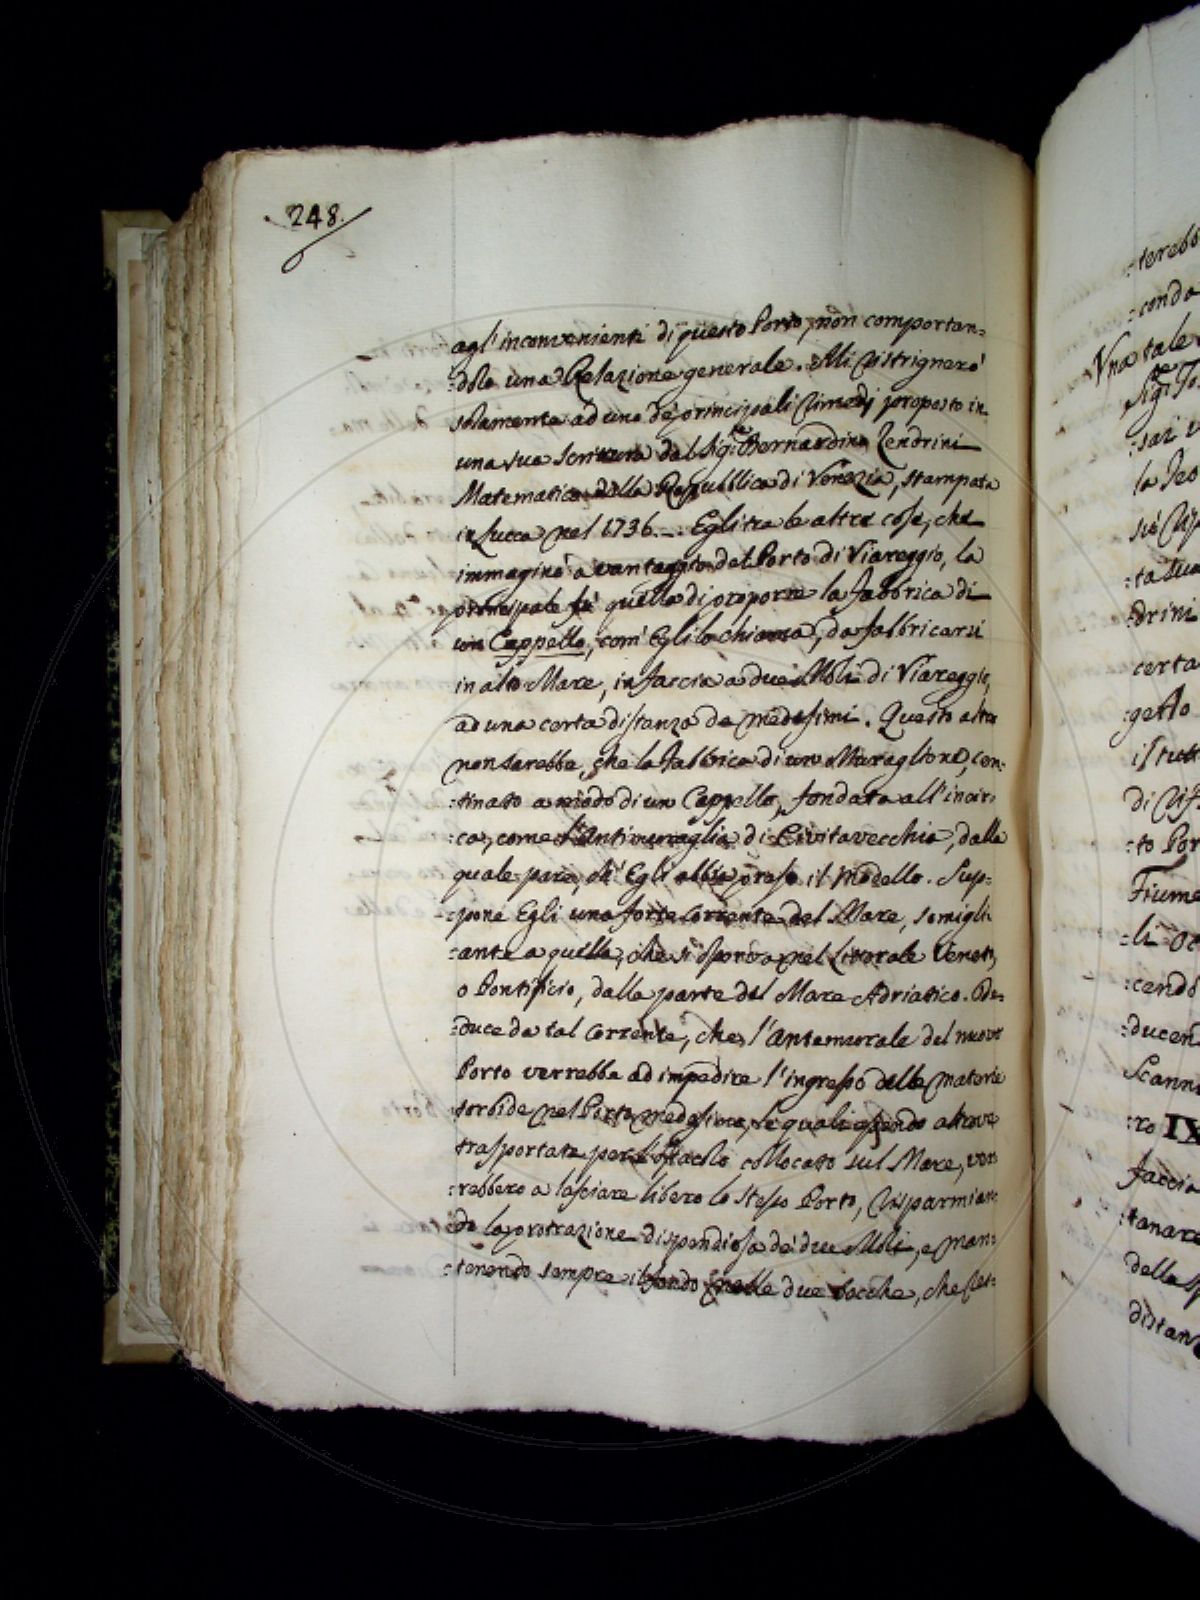 248.
agl'inconvenienti di questo Porto, non comportan=
:dolo una Relazione generale. Mi ristrignerò
solamente ad uno de' principali rimedj proposto in
una sua scrittura dal Sig.re Bernardino Zendrini
Matematico della Repubblica di Venezia, stampata
in Lucca nel 1736. Egli tra le altre cose, che
immaginò a vantaggio del Porto di Viareggio, la
principale fù quella di proporre la fabbrica di
un Cappello, com' Egli lo chiama, da fabbricarsi
in alto Mare, in faccia a due Moli di Viareggio,
ad una certa distanza de medesimi. Questo altro
non sarebbe, che la fabbrica di un Muraglione, cen:
:tinato a modo di un Cappello, fondato all' incir:
:ca, come l'Antimuraglia di Civitavecchia, dalla
quale pare, ch' Egli abbia preso il modello. Sup:
:pone Egli una forte corrente del Mare, somigli
:ante a quella, che si osserva nel Littorale Veneto,
o Pontificio, dalla parte del Mare Adriatico. De:
:duce da tal corrente, che l'Antemurale del nuovo
Porto verrebbe ad impedire l'ingresso delle materie
torbide nel Porto medesimo, le quali essendo altrove
trasportate per l'ostacolo collocato sul Mare, ver
:rebbero a lasciare libero lo stesso Porto, risparmian:
:do la protrazione dispendiosa de' due Moli, e man:
:tenendo sempre il fondo nelle due bocche, che res:
:terebb
:conda
Una tale
Sig.re To
:sar
la Teo
:ta sua
:drini
certa
:getto
il tutt
di
:to Por
Fiume
:li
:cendo
:ducen
Scann
:ro IX
faccia
:tanare
della sp
distan